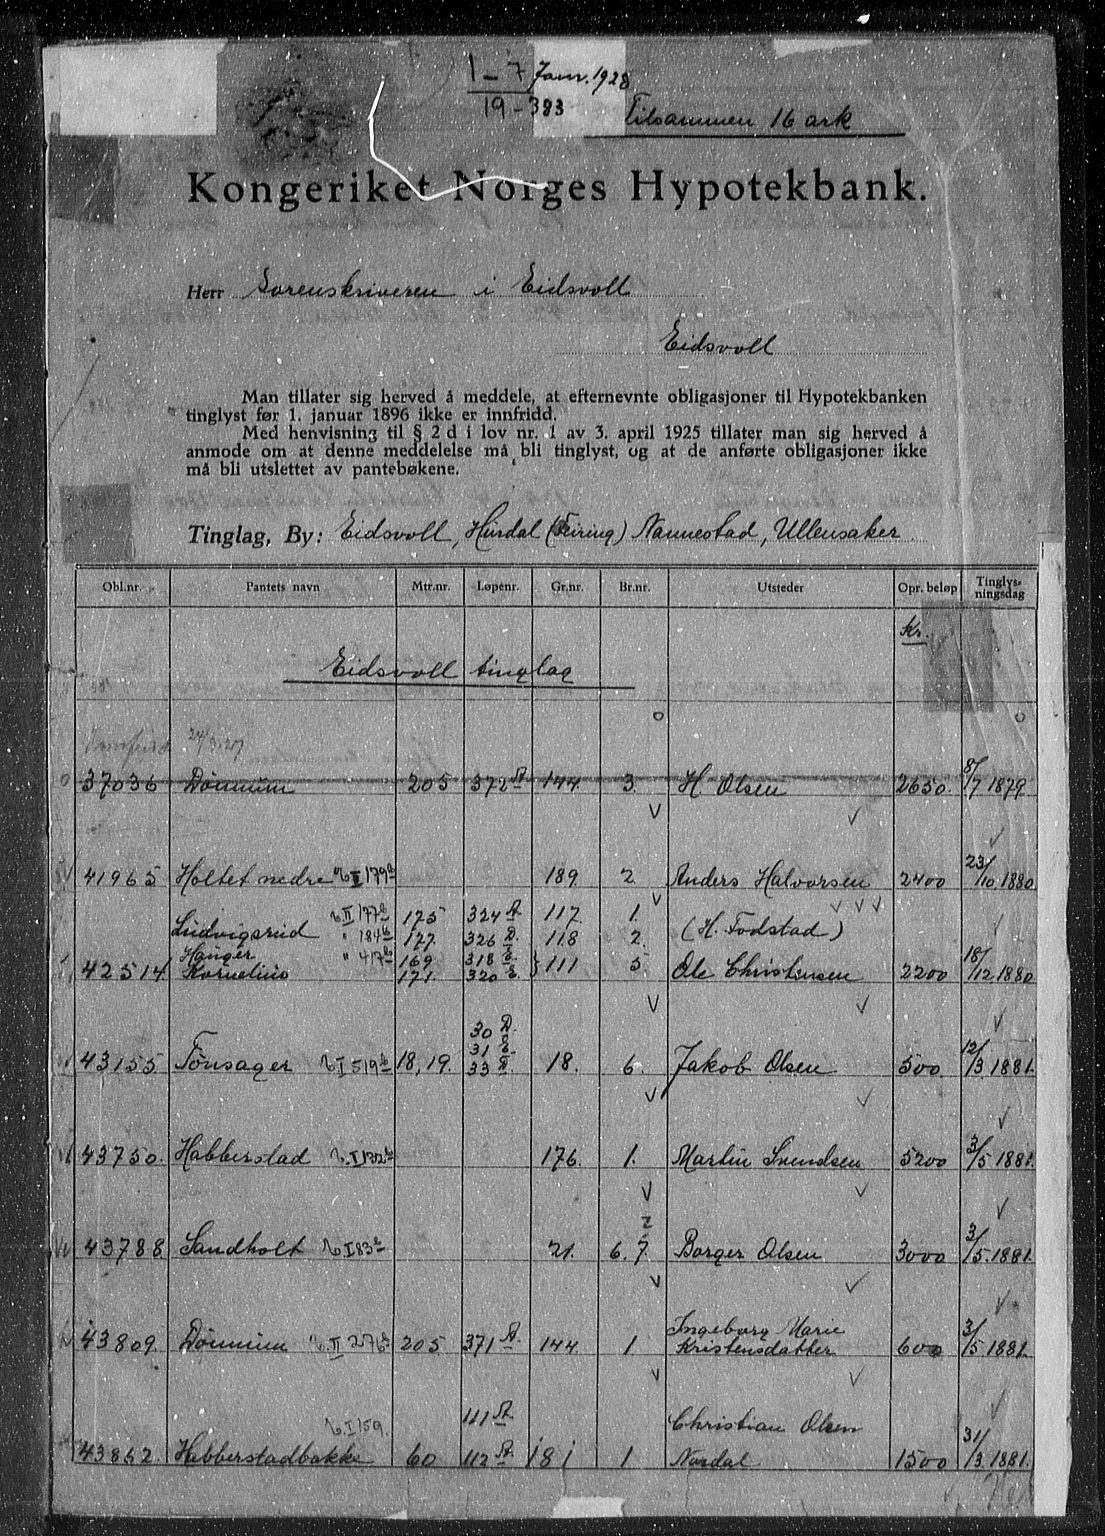 1 – 7 Janr. 1928
19 – 383
Tilsammen 16 ark
Kongeriket Norges Hypotekbank.
Herr Sorenskriveren i Eidsvoll
Eidsvoll
Man tillater sig herved å meddele, at efternevnte obligasjoner til Hypotekbanken
tinglyst før 1. januar 1896 ikke er innfridd.
Med henvisning til § 2 d i lov nr. 1 av 3. april 1925 tillater man sig herved å
anmode om at denne meddelelse må bli tinglyst, og at de anførte obligasjoner ikke
må bli utslettet av pantebøkene.
Tinglag, By: Eidsvoll, Hurdal (Feiring) Nannestad, Ullensaker
Obl.nr. Pantets navn Mtr.nr. Løpenr. Gr.nr. Br.nr. Utsteder Opr. beløp Tinglys-
ningsdag
Kr.
Eidsvoll tinglag
Innfridd 24/3.27
37036 Dønnum 205 372 a 144 3. H. Olsen 2650. 8/7 1879.
41965 Holtet nedre 189. 2. Anders Halvorsen 2400 23/10. 1880.
Ludvigsrud 175 324 117. 1. (H. Fodstad)
177. 326 118 2.
Hanger 169 318
42514. Kornelius 171. 320 111 5. Ole Christensen 2200 18/12 1880
30
31
43155 Tønsager 18, 19. 33 18. 6. Jakob Olsen 500. 12/3. 1881.
43750. Habberstad 176. 1. Martin Svendsen 5200 3/5 1881.
2
43788 Sandholt 21. 6. 7. Borger Olsen 3000 3/5. 1881.
Ingeborg Marie
43809. Dønnum 205. 371 a 144 1 Kristensdatter 600 3/5 1881.
111 Christian Olsen
43852. Habberstadbakke 60 112 181 1 Nordal 1500 31/3. 1881.